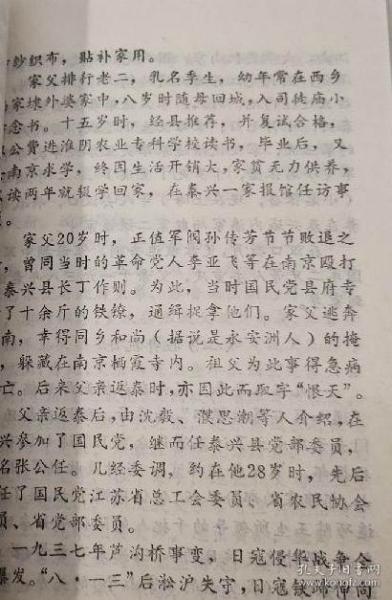 纱织布，贴补家用。
家父排行老二，乳名季生，幼年常在西乡
家埭外婆家中，八岁时随母回城，入司徒庙小
念书。十五岁时，经县推荐，并复试合格，
公费进淮阴农业专科学校读书，毕业后，又
南京求学，终因生活开销大，家贫无力供养，
读两年就辍学回家，在泰兴一家报馆任访事
。
家父20岁时，正值军阀孙传芳节节败退之
，曾同当时的革命党人李亚飞等在南京殴打
泰兴县长丁作则。为此，当时国民党县府专
了十余斤的铁镣，通缉捉拿他们。家父逃奔
南，幸得同乡和尚（据说是永安洲人）的掩
，躲藏在南京栖霞寺内。祖父为此事得急病
亡。后来父亲返泰时，亦因此而取字“恨天”。
父亲返泰后，由沈毅、濮思潮等人介绍，在
兴参加了国民党，继而任泰兴县党部委员，
名张公任。几经委调，约在他28岁时，先后
任了国民党江苏省总工会委员、省农民协会
员、省党部委员。
一九三七年芦沟桥事变，日寇侵华战争全
爆发。“八·一三”后淞沪失守，日寇铁蹄向